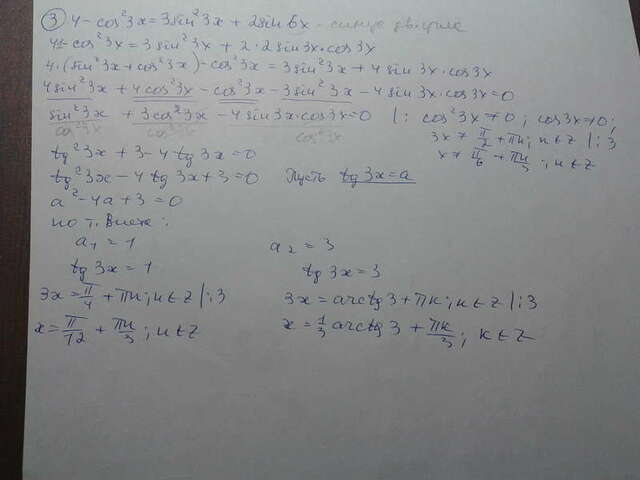 ③ 4 - cos²3x = 3sin²3x + 2sin6x - синус
4 - cos²3x = 3sin²3x + 2·2sin3x·cos3x
4·(sin²3x + cos²3x) - cos²3x = 3sin²3x + 4sin3x·cos3x
4sin²3x + 4cos²3x - cos²3x - 3sin²3x - 4sin3x·cos3x = 0
sin²3x + 3cos²3x - 4sin3x·cos3x = 0 |: cos²3x ≠ 0; cos3x ≠ 0;
cos²3x cos²3x cos²3x
3x ≠ π/2 + πn; n∈Z |:3
x ≠ π/6 + πn/3; n∈Z
tg²3x + 3 - 4tg3x = 0
tg²3x - 4tg3x + 3 = 0 Пусть tg3x = a
a² - 4a + 3 = 0
по т. Виета:
a₁ = 1 a₂ = 3
tg3x = 1 tg3x = 3
3x = π/4 + πn; n∈Z |:3 3x = arctg3 + πк; к∈Z |:3
x = π/12 + πn/3; n∈Z x = 1/3 arctg3 + πк/3; к∈Z